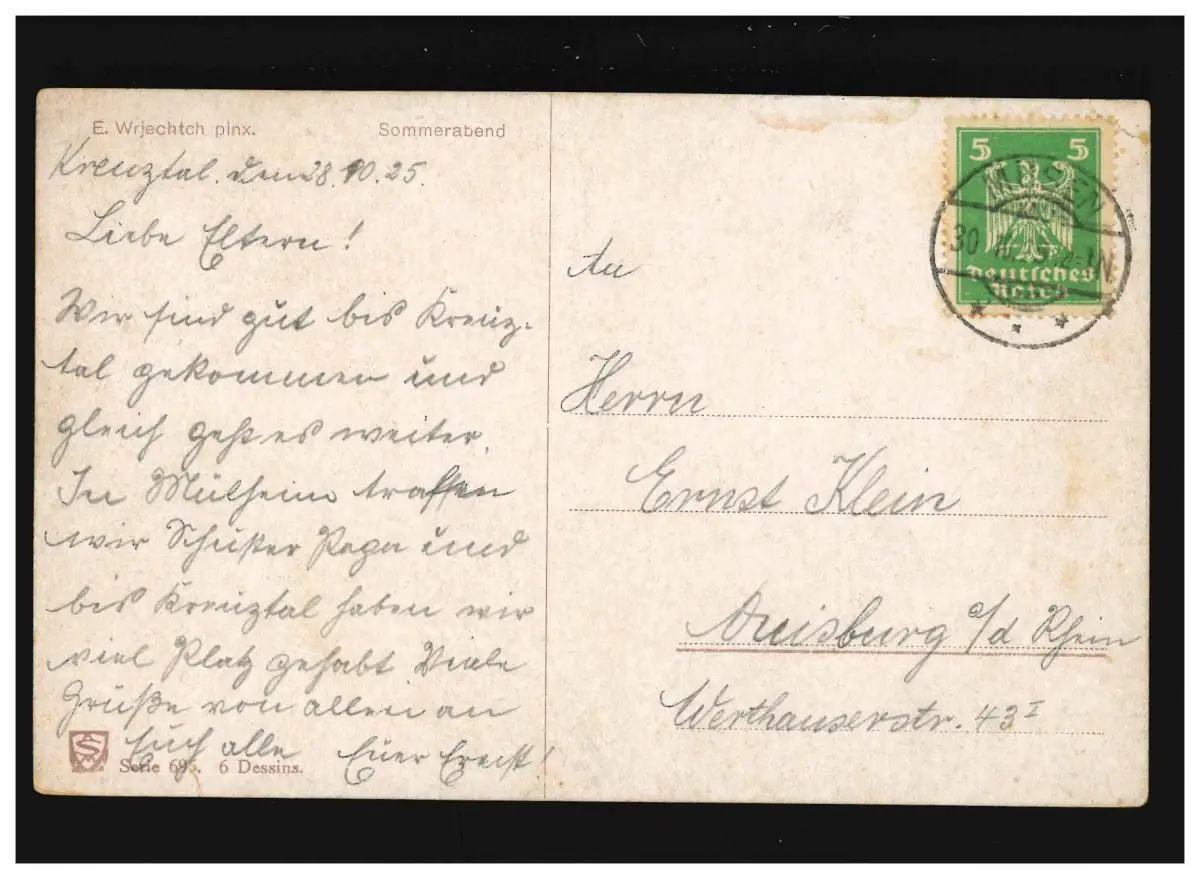 E. Wrjechtch pinx.
Sommerabend
Kreuztal. den 28.10.25.
Liebe Eltern!
Wir sind gut bis Kreuz-
tal gekommen und
gleich geht es weiter.
In Mülheim traffen
wir Schuster Papa und
bis Kreuztal haben wir
viel Platz gehabt. Viele
Grüße von allen an
Euch alle Euer Ernst!
Serie 695. 6 Dessins.
5 5
Deutsches
Reich
MÜSEN
30.10.25
An
Herrn
Ernst Klein
Duisburg a/d Rhein
Werthauserstr. 43 I